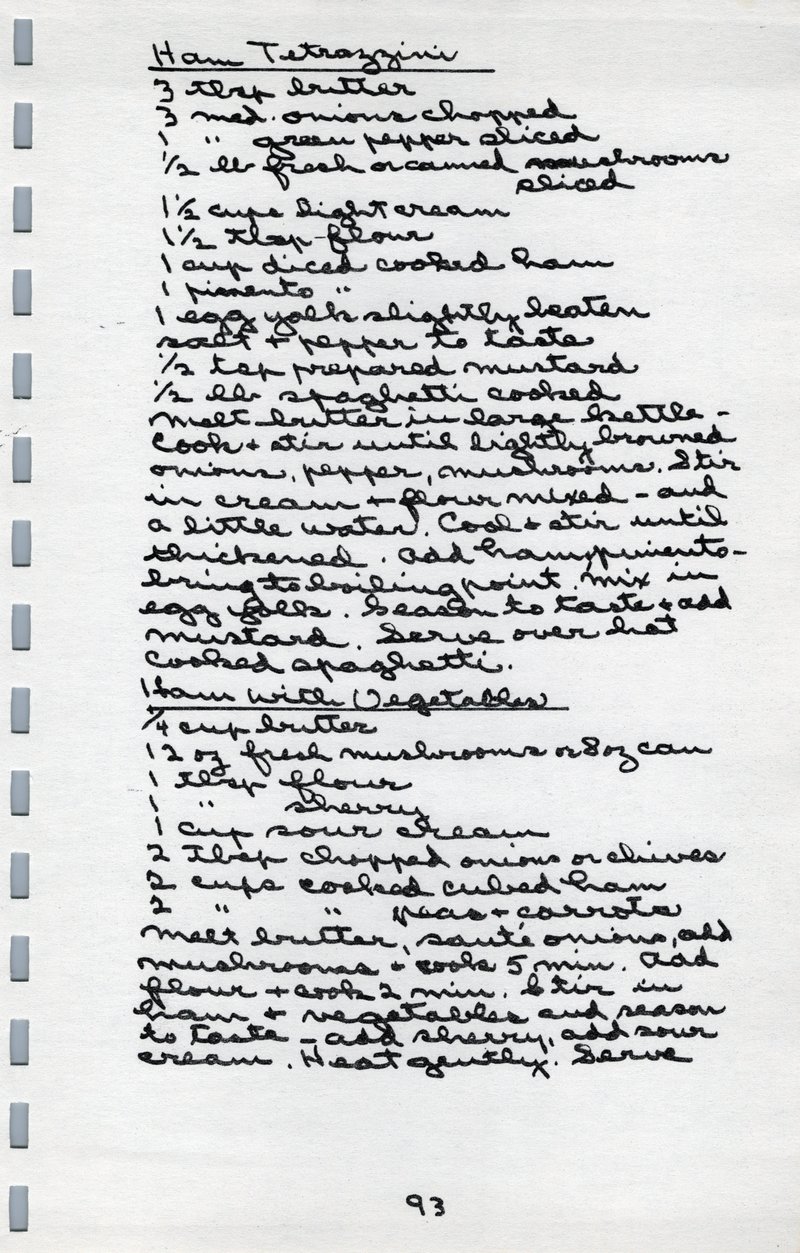 Ham Tetrazzini
3 tbsp butter
3 med. onions chopped
1 " green pepper sliced
1/2 lb fresh or canned mushrooms
sliced
1 1/2 cups light cream
1 1/2 tbsp flour
1 cup diced cooked ham
1 pimento "
1 egg yolk slightly beaten
salt + pepper to taste
1/2 tsp prepared mustard
1/2 lb spaghetti cooked
Melt butter in large kettle -
Cook + stir until lightly browned
onions, pepper, mushrooms. Stir
in cream + flour mixed - and
a little water. Cook + stir until
thickened. Add ham, pimento -
bring to boiling point. Mix in
egg yolk. Season to taste + add
mustard. Serve over hot
cooked spaghetti.
Ham with Vegetables
1/4 cup butter
12 oz fresh mushrooms or 8 oz can
1 tbsp flour
1 " sherry
1 cup sour cream
2 Tbsp chopped onions or chives
2 cups cooked cubed ham
2 " " peas + carrots
Melt butter, sauté onions, add
mushrooms + cook 5 min. Add
flour + cook 2 min. Stir in
ham + vegetables and season
to taste - add sherry, add sour
cream. Heat gently. Serve
93